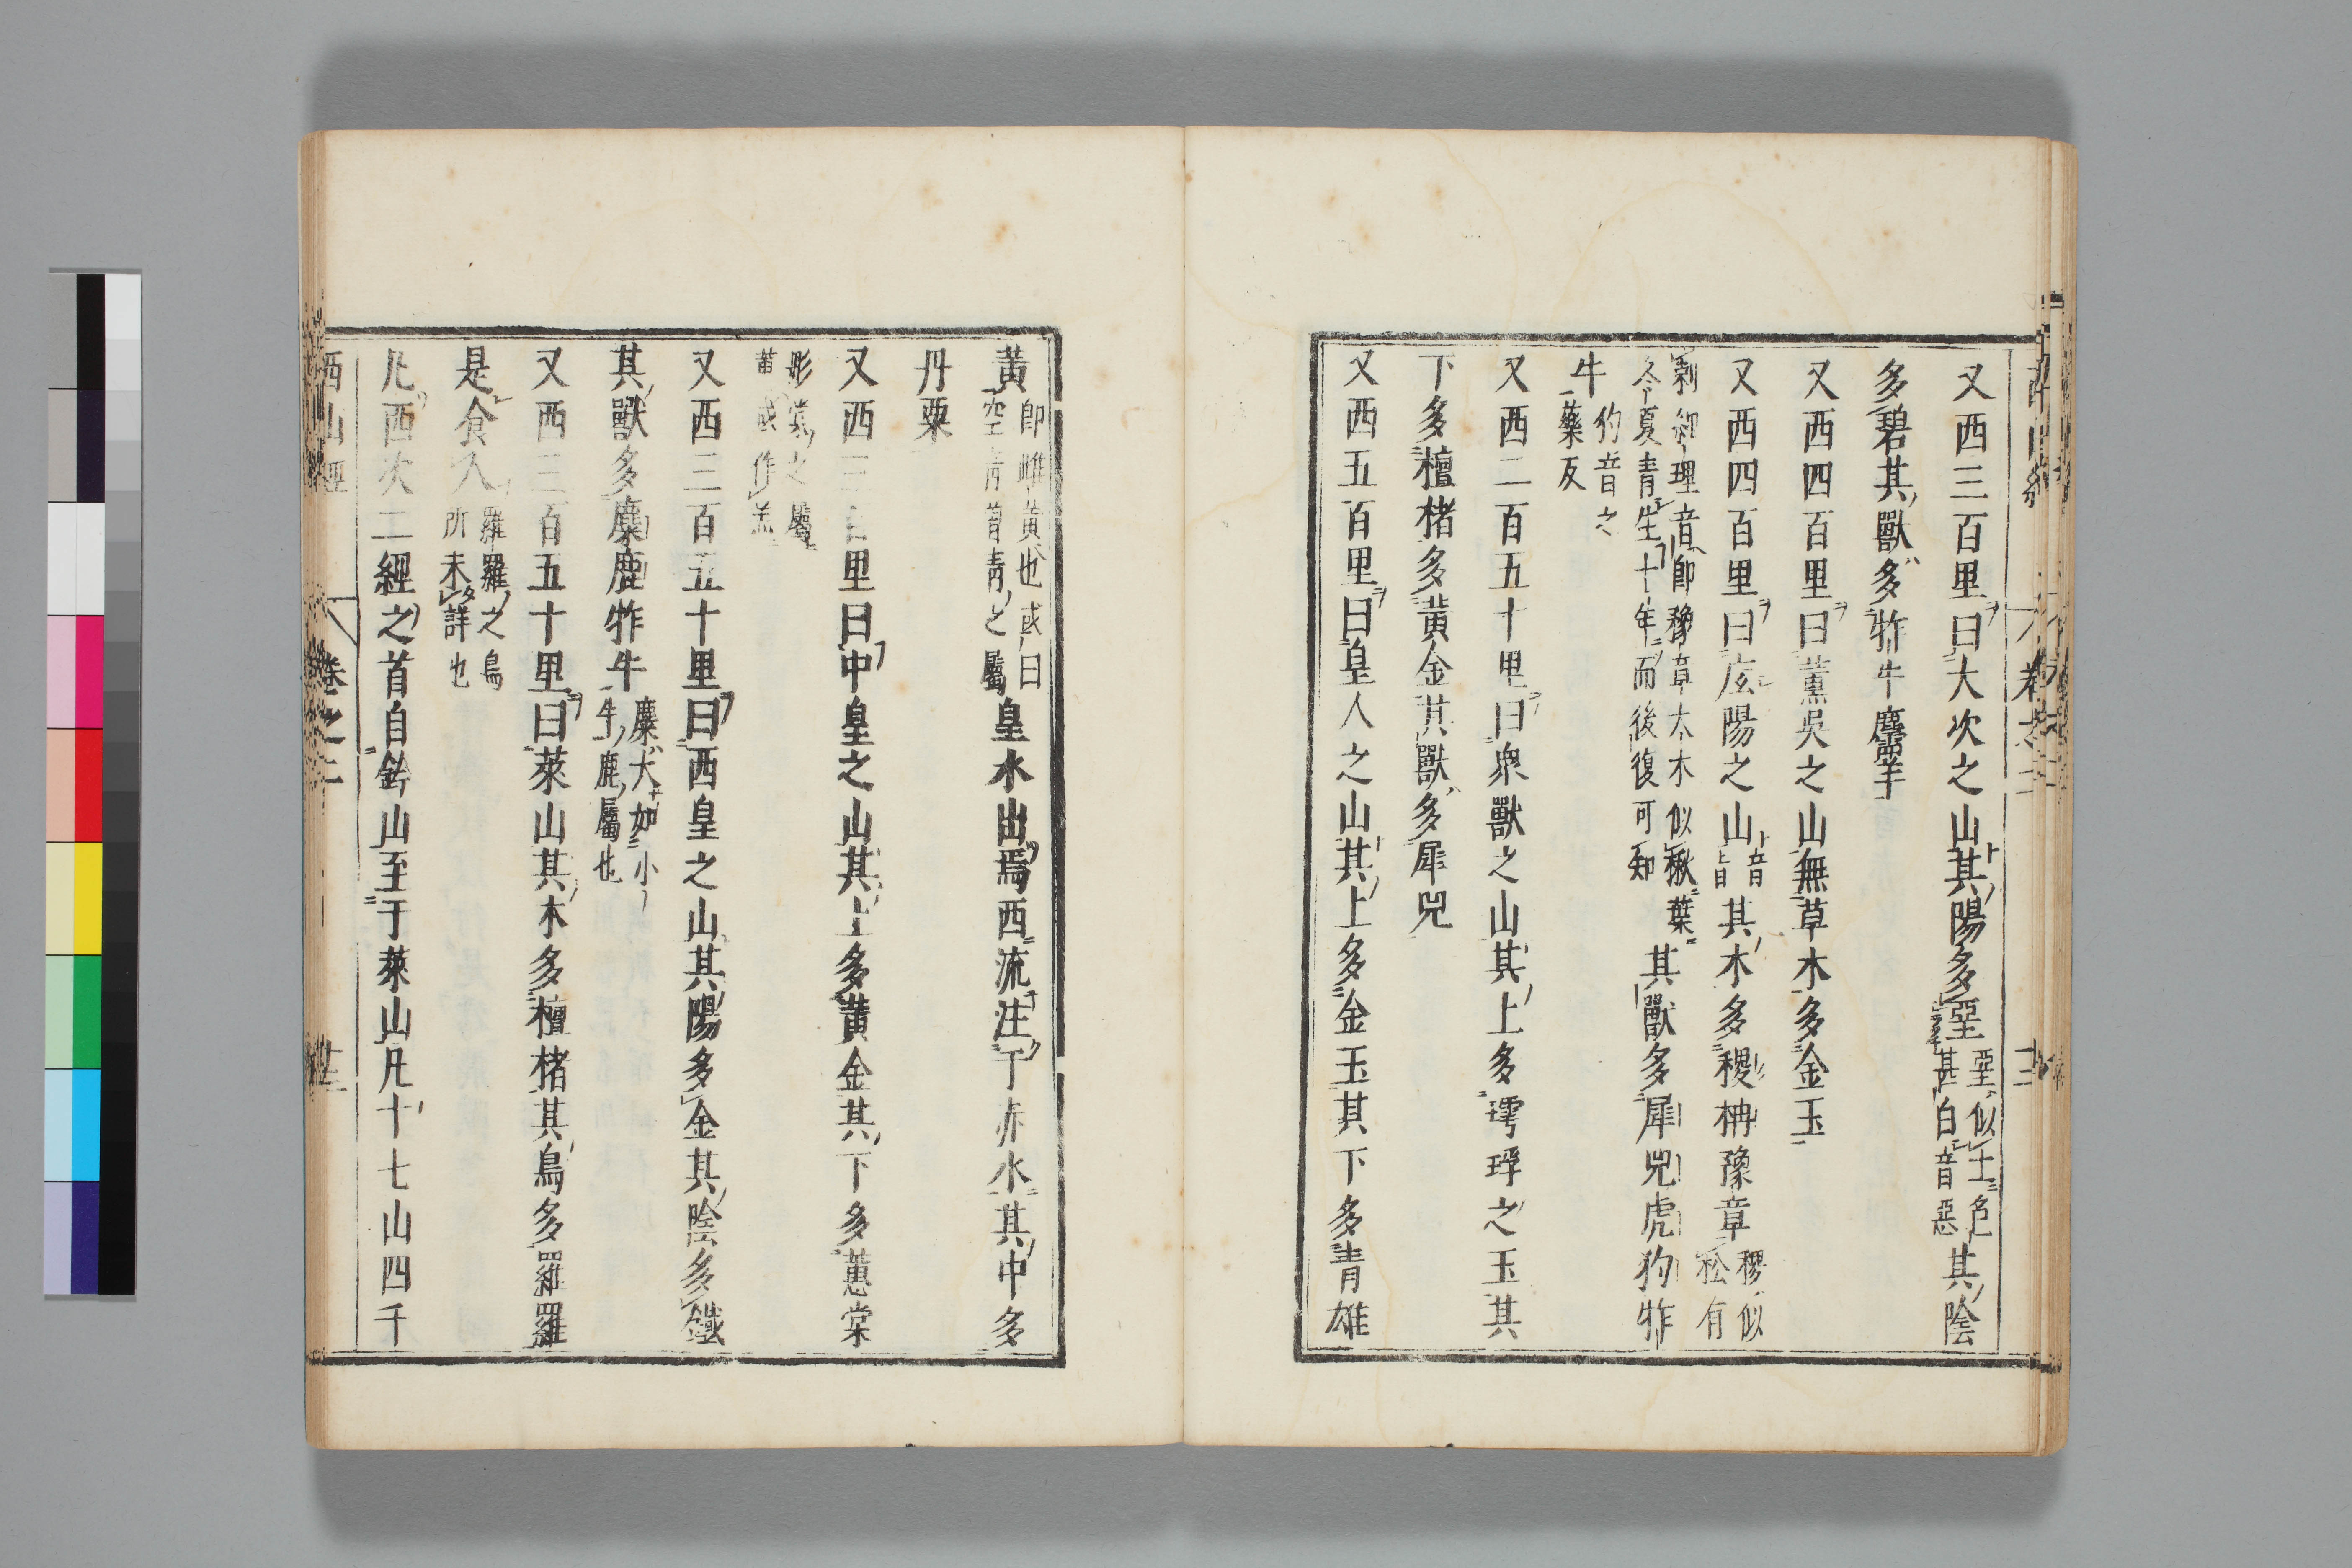 又西三百里曰大次之山其陽多堊堊似土色甚白音惡其陰
多碧其獸多㸲牛麢羊
又西四百里曰薰吳之山無草木多金玉
又西四百里曰厎陽之山音旨其木多㮨枏豫章㮨似松有
刺細理音即豫章大木似楸葉冬夏青生七年而後復可知其獸多犀兕虎犳㸲
牛犳音之藥反
又西二百五十里曰眾獸之山其上多㻬琈之玉其
下多檀楮多黃金其獸多犀兕
又西五百里曰皇人之山其上多金玉其下多青雄
黃即雌黃也或曰空青曾青之屬皇水出焉西流注于赤水其中多
丹粟
又西三百里曰中皇之山其上多黃金其下多蕙棠
彤棠之屬蕙或作羔
又西三百五十里曰西皇之山其陽多金其陰多鐵
其獸多麋鹿㸲牛麋大如小牛鹿屬也
又西三百五十里曰萊山其木多檀楮其鳥多羅羅
是食人羅羅之鳥所未詳也
凡西次二經之首自鈐山至于萊山凡十七山四千
西山經 卷之二